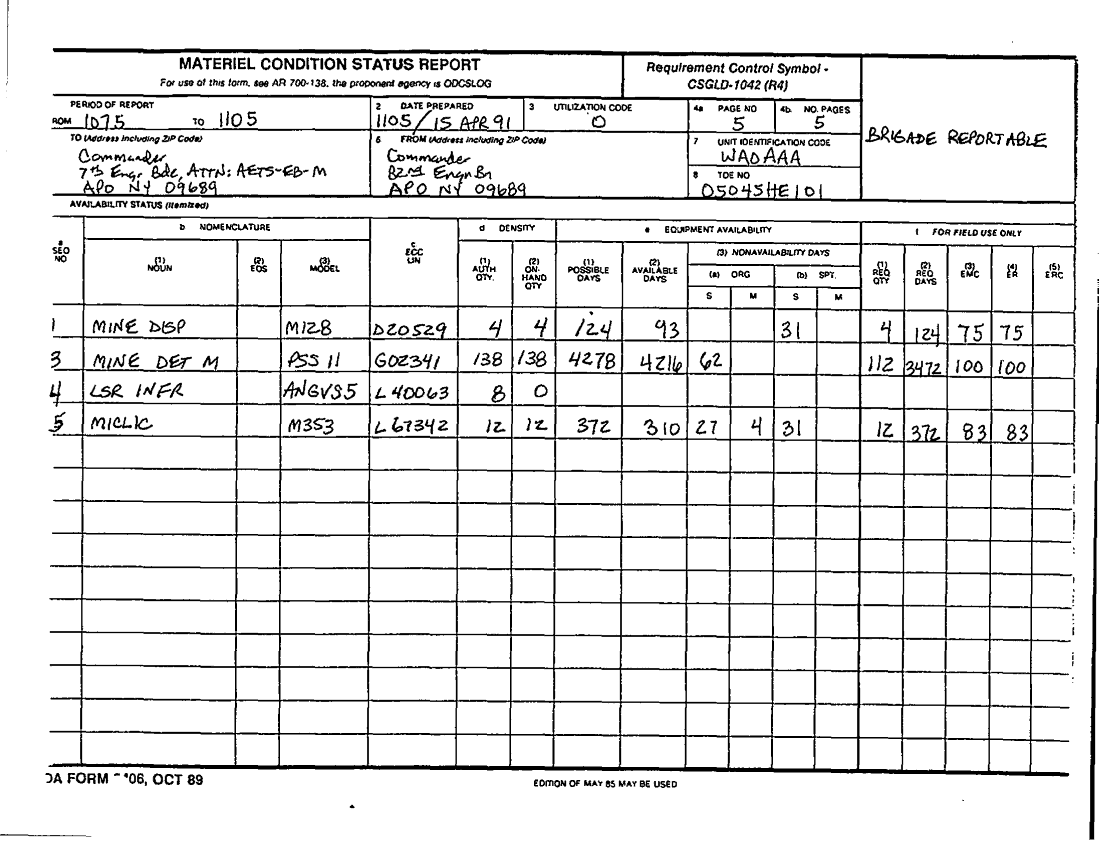 MATERIEL CONDITION STATUS REPORT
For use of this form, see AR 700-138, the proponent agency is ODCSLOG
Requirement Control Symbol -
CSGLD-1042 (R4)
BRIGADE REPORTABLE
PERIOD OF REPORT
ROM 1075 TO 1105
2 DATE PREPARED
1105/15 APR 91
3 UTILIZATION CODE
0
4a PAGE NO
5
4b. NO. PAGES
5
TO (Address including ZIP Code)
Commander
7th Engr Bde, ATTN: AETS-EB-M
APO NY 09689
6 FROM (Address including ZIP Code)
Commander
82nd Engr Bn
APO NY 09689
7 UNIT IDENTIFICATION CODE
WAOAAA
8 TOE NO
05045HE101
AVAILABILITY STATUS (Itemized)
a SEQ NO
b NOMENCLATURE
(1) NOUN
(2) EOS
(3) MODEL
c ECC LIN
d DENSITY
(1) AUTH QTY.
(2) ON-HAND QTY
e EQUIPMENT AVAILABILITY
(1) POSSIBLE DAYS
(2) AVAILABLE DAYS
(3) NONAVAILABILITY DAYS
(a) ORG
(b) SPT.
S M S M
f FOR FIELD USE ONLY
(1) REQ QTY
(2) REQ DAYS
(3) EMC
(4) ER
(5) ERC
1 MINE DISP M128 D20529 4 4 124 93 31 4 124 75 75
3 MINE DET M PSS 11 G02341 138 138 4278 4216 62 112 3472 100 100
4 LSR INFR ANGVS5 L40063 8 0
5 MICLIC M353 L67342 12 12 372 310 27 4 31 12 372 83 83
DA FORM 06, OCT 89
EDITION OF MAY 85 MAY BE USED